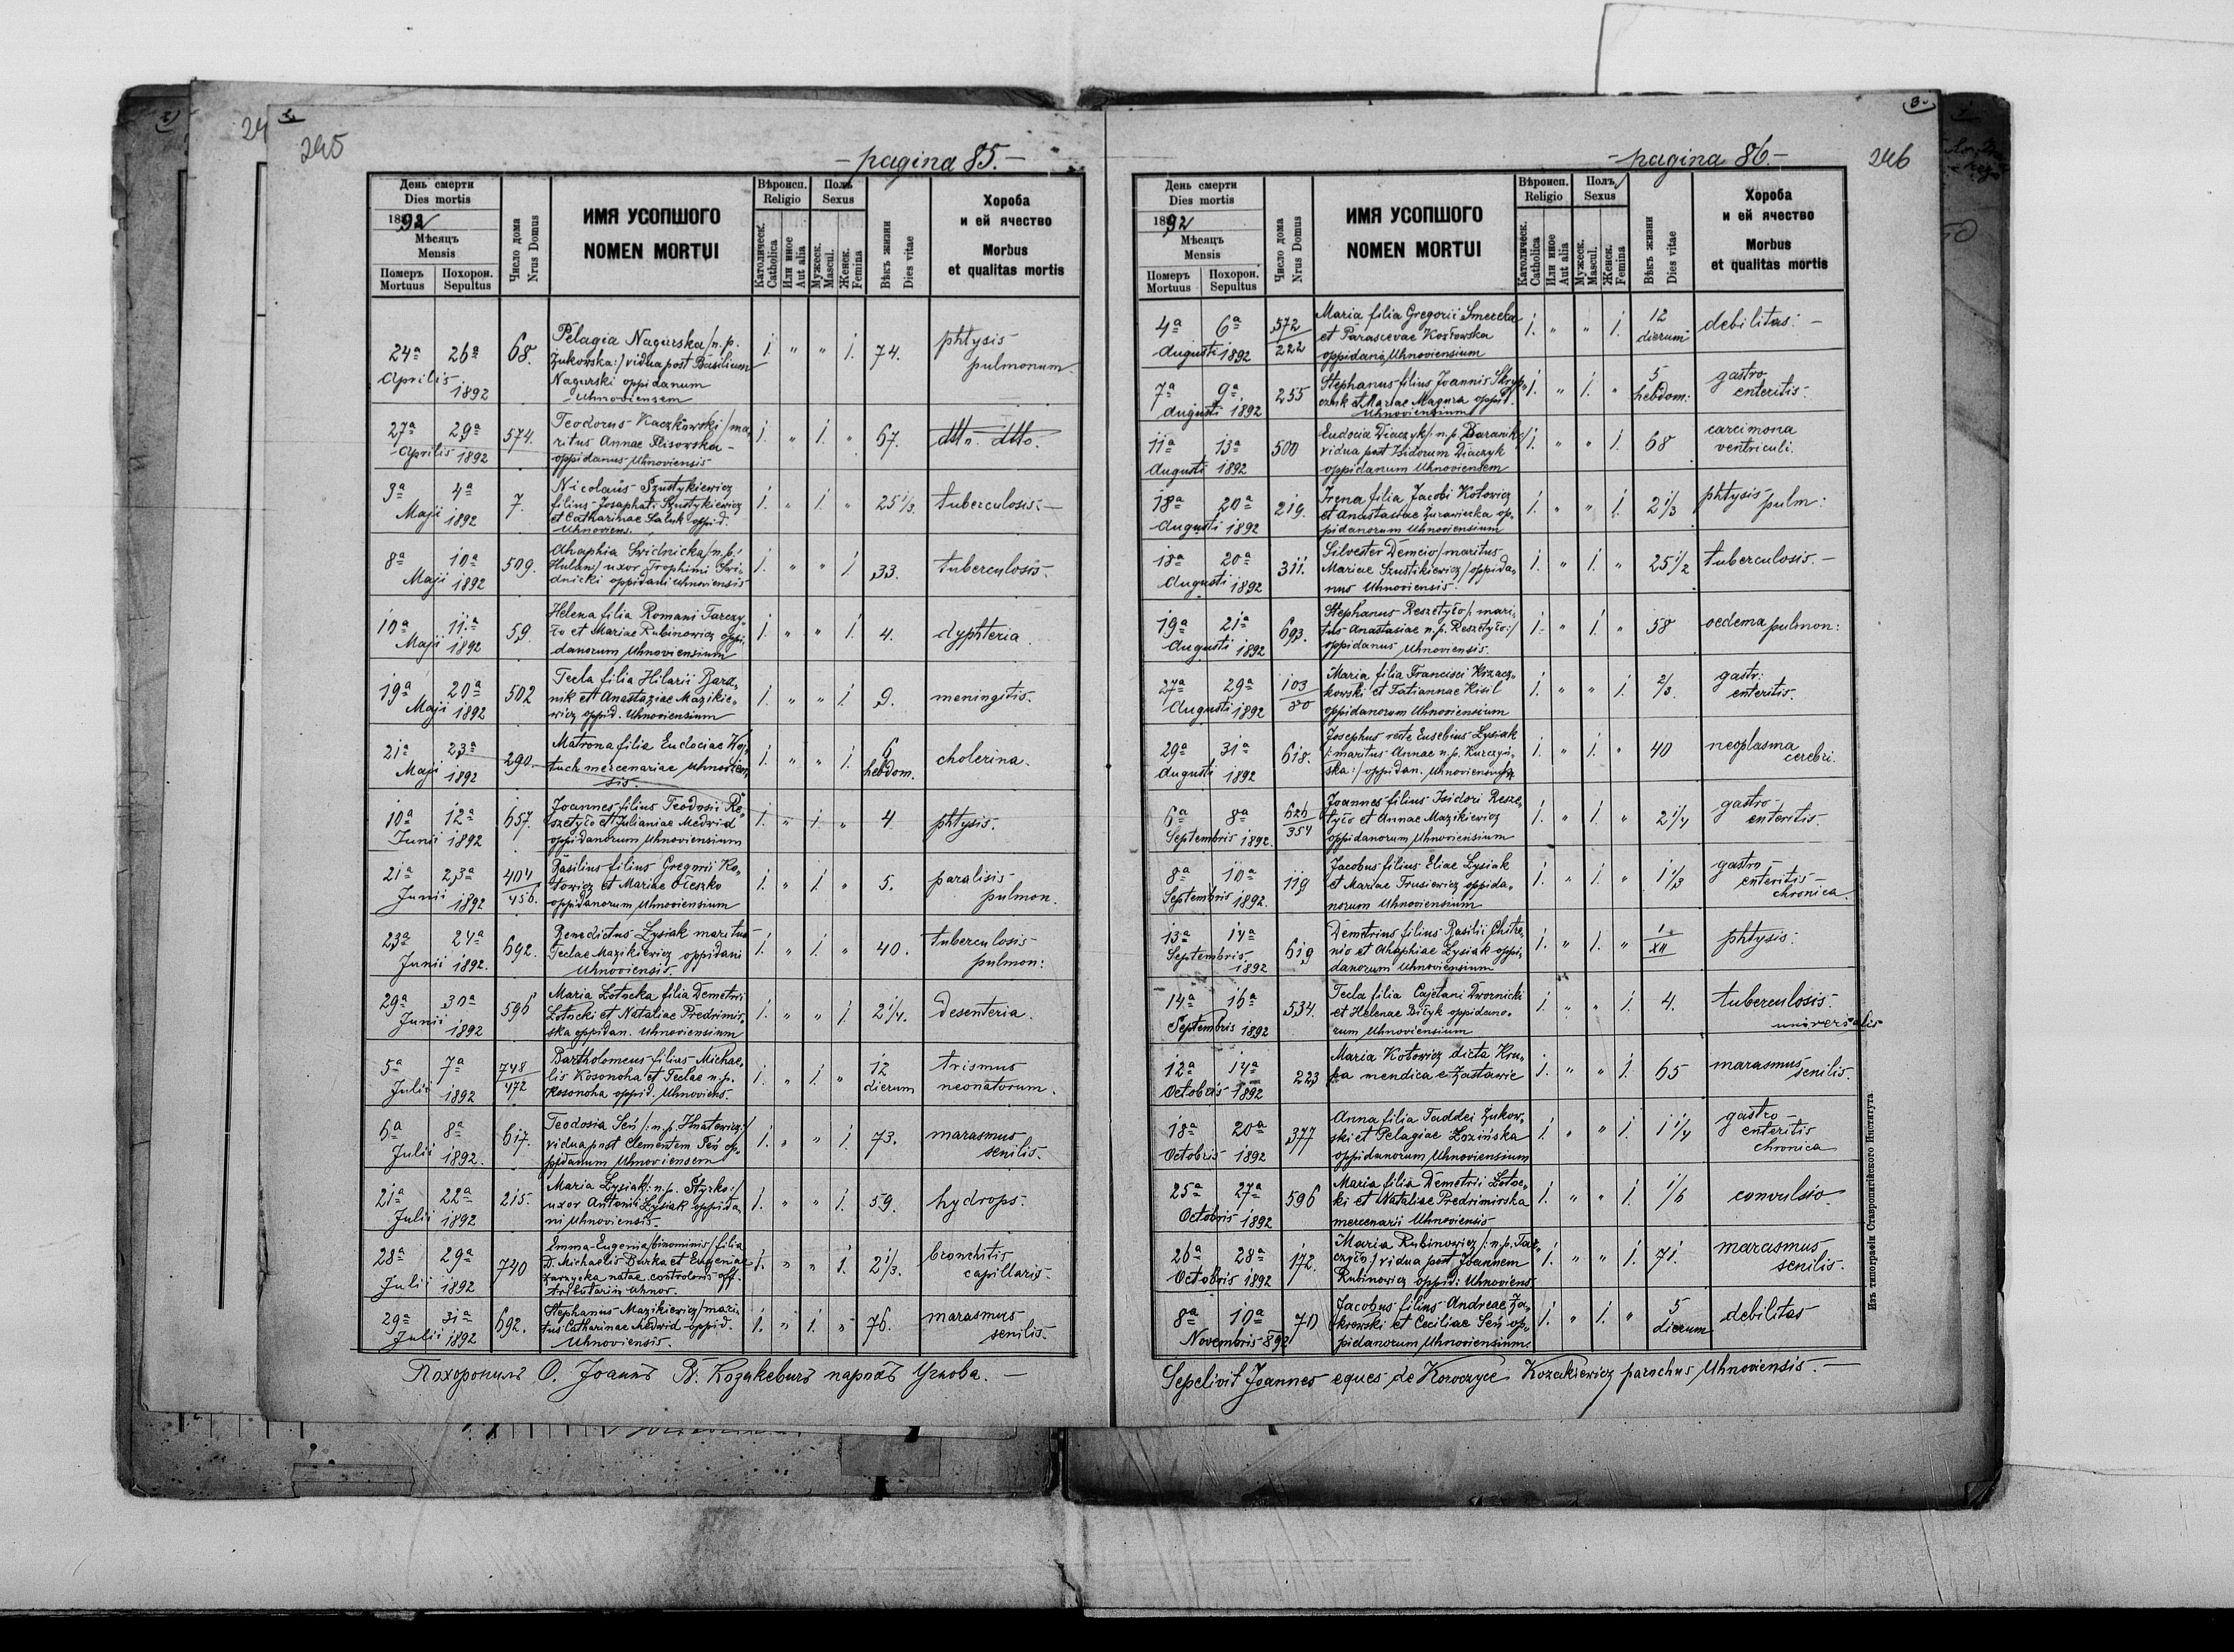 245
- pagina 85. -
День смерти
Dies mortis
1892
Мѣсяцъ
Mensis
Померъ Mortuus
Похорон. Sepultus
Число дома
Nrus Domus
ИМЯ УСОПШОГО
NOMEN MORTUI
Вѣроисп.
Religio
Католическ.
Catholica
Или иное
Aut alia
Полъ
Sexus
Мужеск.
Mascul.
Женск.
Femina
Вѣкъ жизни
Dies vitae
Хороба
и ей ячество
Morbus
et qualitas mortis
24a 26a Aprilis 1892 68.
Pelagia Nagurska /:n.p.
Żukowska:/ vidua post Basilium
Nagurski oppidanum
Uhnoviensem
1. " " 1. 74. phtysis
pulmonum
27a 29a Aprilis 1892 574.
Teodorus Kaczkowski /ma-
ritus Annae Flisovska -
oppidanus Uhnoviensis
1. " 1. " 67. dtto. dtto.
3a 4a Maji 1892 7.
Nicolaus Szustykiewicz
filius Josaphati Szustykiewicz
et Catharinae Saluk oppid.
Uhnoviens.
1. " 1. " 25 1/3. tuberculosis. -
8a 10a Maji 1892 509.
Ahaphia Swidnicka /n.p.:
Hulan/ uxor Trophimi Swi-
dnicki oppidani Uhnoviensis
1. " " 1. 33. tuberculosis.
10a 11a Maji 1892 59.
Helena filia Romani Tarczy-
ło et Mariae Rubinowicz oppi-
danorum Uhnoviensium
1. " " 1. 4. dyphteria
19a 20a Maji 1892 502
Tecla filia Hilarii Bara-
nik et Anastaziae Mazikie-
wicz oppid. Uhnoviensium
1. " " 1. 9. meningitis.
21a 23a Maji 1892 290.
Matrona filia Eudociae
tuch mercenariae Uhnovien-
sis.
1. " " 1. 6 hebdom. cholerina.
10a 12a Junii 1892 657.
Joannes filius Teodosii Re-
szetyło et Julianiae Medwid
oppidanorum Uhnoviensium
1. " 1. " 4 phtysis.
21a 23a Junii 1892 404/456.
Basilius filius Gregorii Ko-
towicz et Mariae Oleszko
oppidanorum Uhnoviensium
1. " 1. " 5. paralisis
pulmon.
23a 24a Junii 1892. 692.
Benedictus Łysiak maritus
Teclae Mazikiewicz oppidani
Uhnoviensis.
1. " 1. " 40. tuberculosis
pulmon:
29a 30a Junii 1892 596
Maria Łotocka filia Demetrii
Łotocki et Nataliae Predrimir-
ska oppidan. Uhnoviensium
1. " " 1. 2 1/4. desenteria.
5a 7a Julii 1892 748/472
Bartholomeus filius Michae-
lis Kosonoha et Teclae n.p.
Kosonoha oppid. Uhnoviens.
1. " 1. " 12 dierum trismus
neonatorum.
6a 8a Julii 1892. 617.
Teodosia Seń /:n.p. Hnatowicz:/
vidua post Clementem Seń op-
pidanum Uhnoviensem
1. " " 1. 73. marasmus
senilis.
21a 22a Julii 1892 215.
Maria Łysiak /:n.p. Styrko:/
uxor Antonii Łysiak oppida-
ni Uhnoviensis.
1. " " 1. 59. hydrops.
28a 29a Julii 1892 740
Emma-Eugenia /binominis/ filia
D. Michaelis Burka et Eugeniae
Zarzycka natae controloris off.
tributarii Uhnov.
1. " " 1. 2 1/3. bronchitis
capillaris.
29a 31a Julii 1892 692.
Stephanus Mazikiewicz /mari-
tus Catharinae Medwid oppid.
Uhnoviensis.
1. " 1. " 76. marasmus
senilis.
Похоронилъ О. Іоаннъ В. Козакевичъ парохъ Угнова. -
246
- pagina 86. -
День смерти
Dies mortis
1892
Мѣсяцъ
Mensis
Померъ Mortuus
Похорон. Sepultus
Число дома
Nrus Domus
ИМЯ УСОПШОГО
NOMEN MORTUI
Вѣроисп.
Religio
Католическ.
Catholica
Или иное
Aut alia
Полъ
Sexus
Мужеск.
Mascul.
Женск.
Femina
Вѣкъ жизни
Dies vitae
Хороба
и ей ячество
Morbus
et qualitas mortis
4a 6a Augusti 1892 572/222
Maria filia Gregorii Smereka
et Parascevae Kozłowska
oppidanor. Uhnoviensium
1. " " 1. 12 dierum debilitas: -
7a 9a. Augusti 1892 255
Stephanus filius Joannis Skryp-
cznik et Mariae Magura oppid.
Uhnoviensium
1. " 1. " 5 hebdom: gastro-
enteritis.
11a 13a Augusti 1892 500
Eudocia Diaczyk /:n.p. Baranik:/
vidua post Isidorum Diaczyk
oppidanum Uhnoviensem
1. " " 1. 68 carcimona
ventriculi.
18a 20a Augusti 1892 219.
Irena filia Jacobi Kotowicz
et Anastasiae Żurawiecka op-
pidanorum Uhnoviensium
1. " " 1. 2 1/3 phtysis pulm:
18a 20a Augusti 1892 311.
Silvester Demcio /maritus
Mariae Szustikiewicz/ oppida-
nus Uhnoviensis.
1. " 1. " 25 1/2 tuberculosis. -
19a 21a Augusti 1892 693.
Stephanus Reszetyło /: mari-
tus Anastasiae n.p. Reszetyło:/
oppidanus Uhnoviensis.
1. " 1. " 58 oedema pulmon:
27a 29a Augusti 1892 103/80
Maria filia Francisci Krzacz-
kowski et Tatiannae Kisil
oppidanorum Uhnoviensium
1. " " 1. 2/3 gastr:
enteritis.
29a 31a Augusti 1892 618.
Josephus recte Eusebius Łysiak
/:maritus Annae n.p. Kurczyń-
ska:/ oppidan. Uhnoviensis
1. " 1. " 40 neoplasma
cerebri.
6a 8a Septembris 1892. 626/354
Joannes filius Isidori Resze-
tyło et Annae Mazikiewicz
oppidanorum Uhnoviensium
1. " 1. " 2 1/4 gastro-
enteritis.
8a 10a Septembris 1892. 119
Jacobus filius Eliae Łysiak
et Mariae Trusiewicz oppida-
norum Uhnoviensium
1. " 1. " 1 1/3 gastro-
enteritis
chronica.
13a 14a Septembris 1892 619
Demetrius filius Basilii Chitre-
nio et Ahaphiae Łysiak oppi-
danorum Uhnoviensium
1. " 1. " 1/XII phtysis.
14a 16a Septembris 1892 534.
Tecla filia Cajetani Dwornicki
et Helenae Biłyk oppidano-
rum Uhnoviensium
1. " " 1. 4. tuberculosis
universalis
12a 14a Octobris 1892 223
Maria Kotowicz dicta Kru-
pa mendica e Zastawie
1. " " 1. 65 marasmus
senilis.
18a 20a Octobris 1892 377
Anna filia Taddei Żukow-
ski et Pelagiae Łozińska
oppidanorum Uhnoviensium
1. " " 1. 1 1/4 gastro-
enteritis
chronica
25a 27a Octobris 1892 596
Maria filia Demetrii Łotoc-
ki et Nataliae Predrimirska
mercenarii Uhnoviensis
1. " " 1. 1/6 convulsio
26a 28a Octobris 1892 172.
Maria Rubinowicz /:n.p. Tar-
czyło:/ vidua post Joannem
Rubinowicz oppid: Uhnoviens.
1. " " 1. 71. marasmus
senilis.
8a 10a Novembris 892 70
Jacobus filius Andreae Za-
krewski et Ceciliae Seń op-
pidanorum Uhnoviensium.
1. " 1. " 5 dierum debilitas
Sepelivit Joannes eques de Koroczyce Kozakiewicz parochus Uhnoviensis. -
Изъ типографіи Ставропигійского Института.